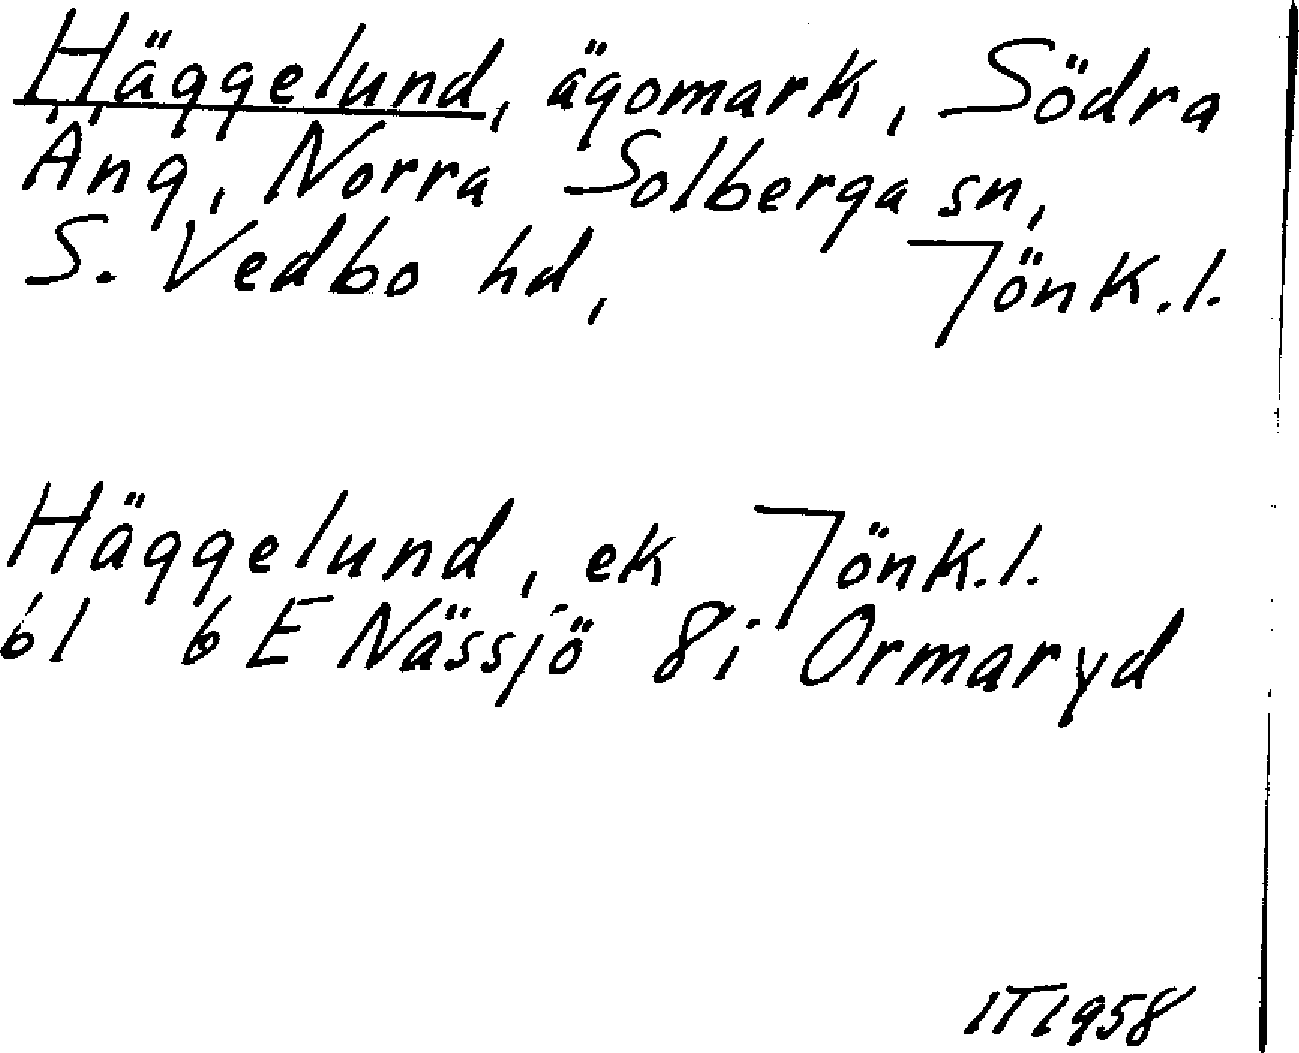 Häggelund, ägomark, Södra
Äng, Norra Solberga sn,
S. Vedbo hd, Jönk.l.
Häggelund, ek Jönk.l.
61 6E Nässjö 8i Ormaryd
IT1958